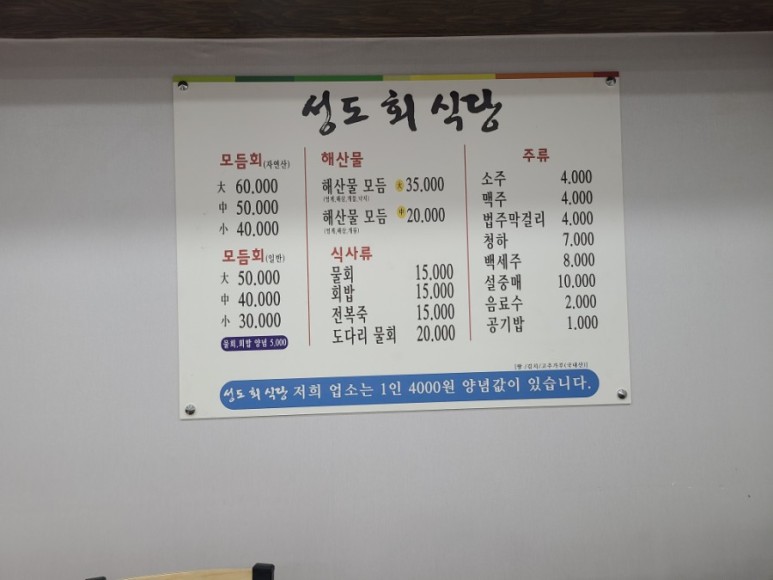 성도 회 식당
모듬회(자연산)
大 60.000
中 50.000
小 40.000
모듬회(일반)
大 50.000
中 40.000
小 30.000
물회.회밥 양념 5,000
해산물
해산물 모듬 大 35.000
해산물 모듬 中 20.000
식사류
물회 15.000
회밥 15.000
전복죽 15.000
도다리 물회 20.000
주류
소주 4.000
맥주 4.000
법주막걸리 4.000
청하 7.000
백세주 8.000
설중매 10.000
음료수 2.000
공기밥 1.000
성도 회 식당 저희 업소는 1인 4000원 양념값이 있습니다.